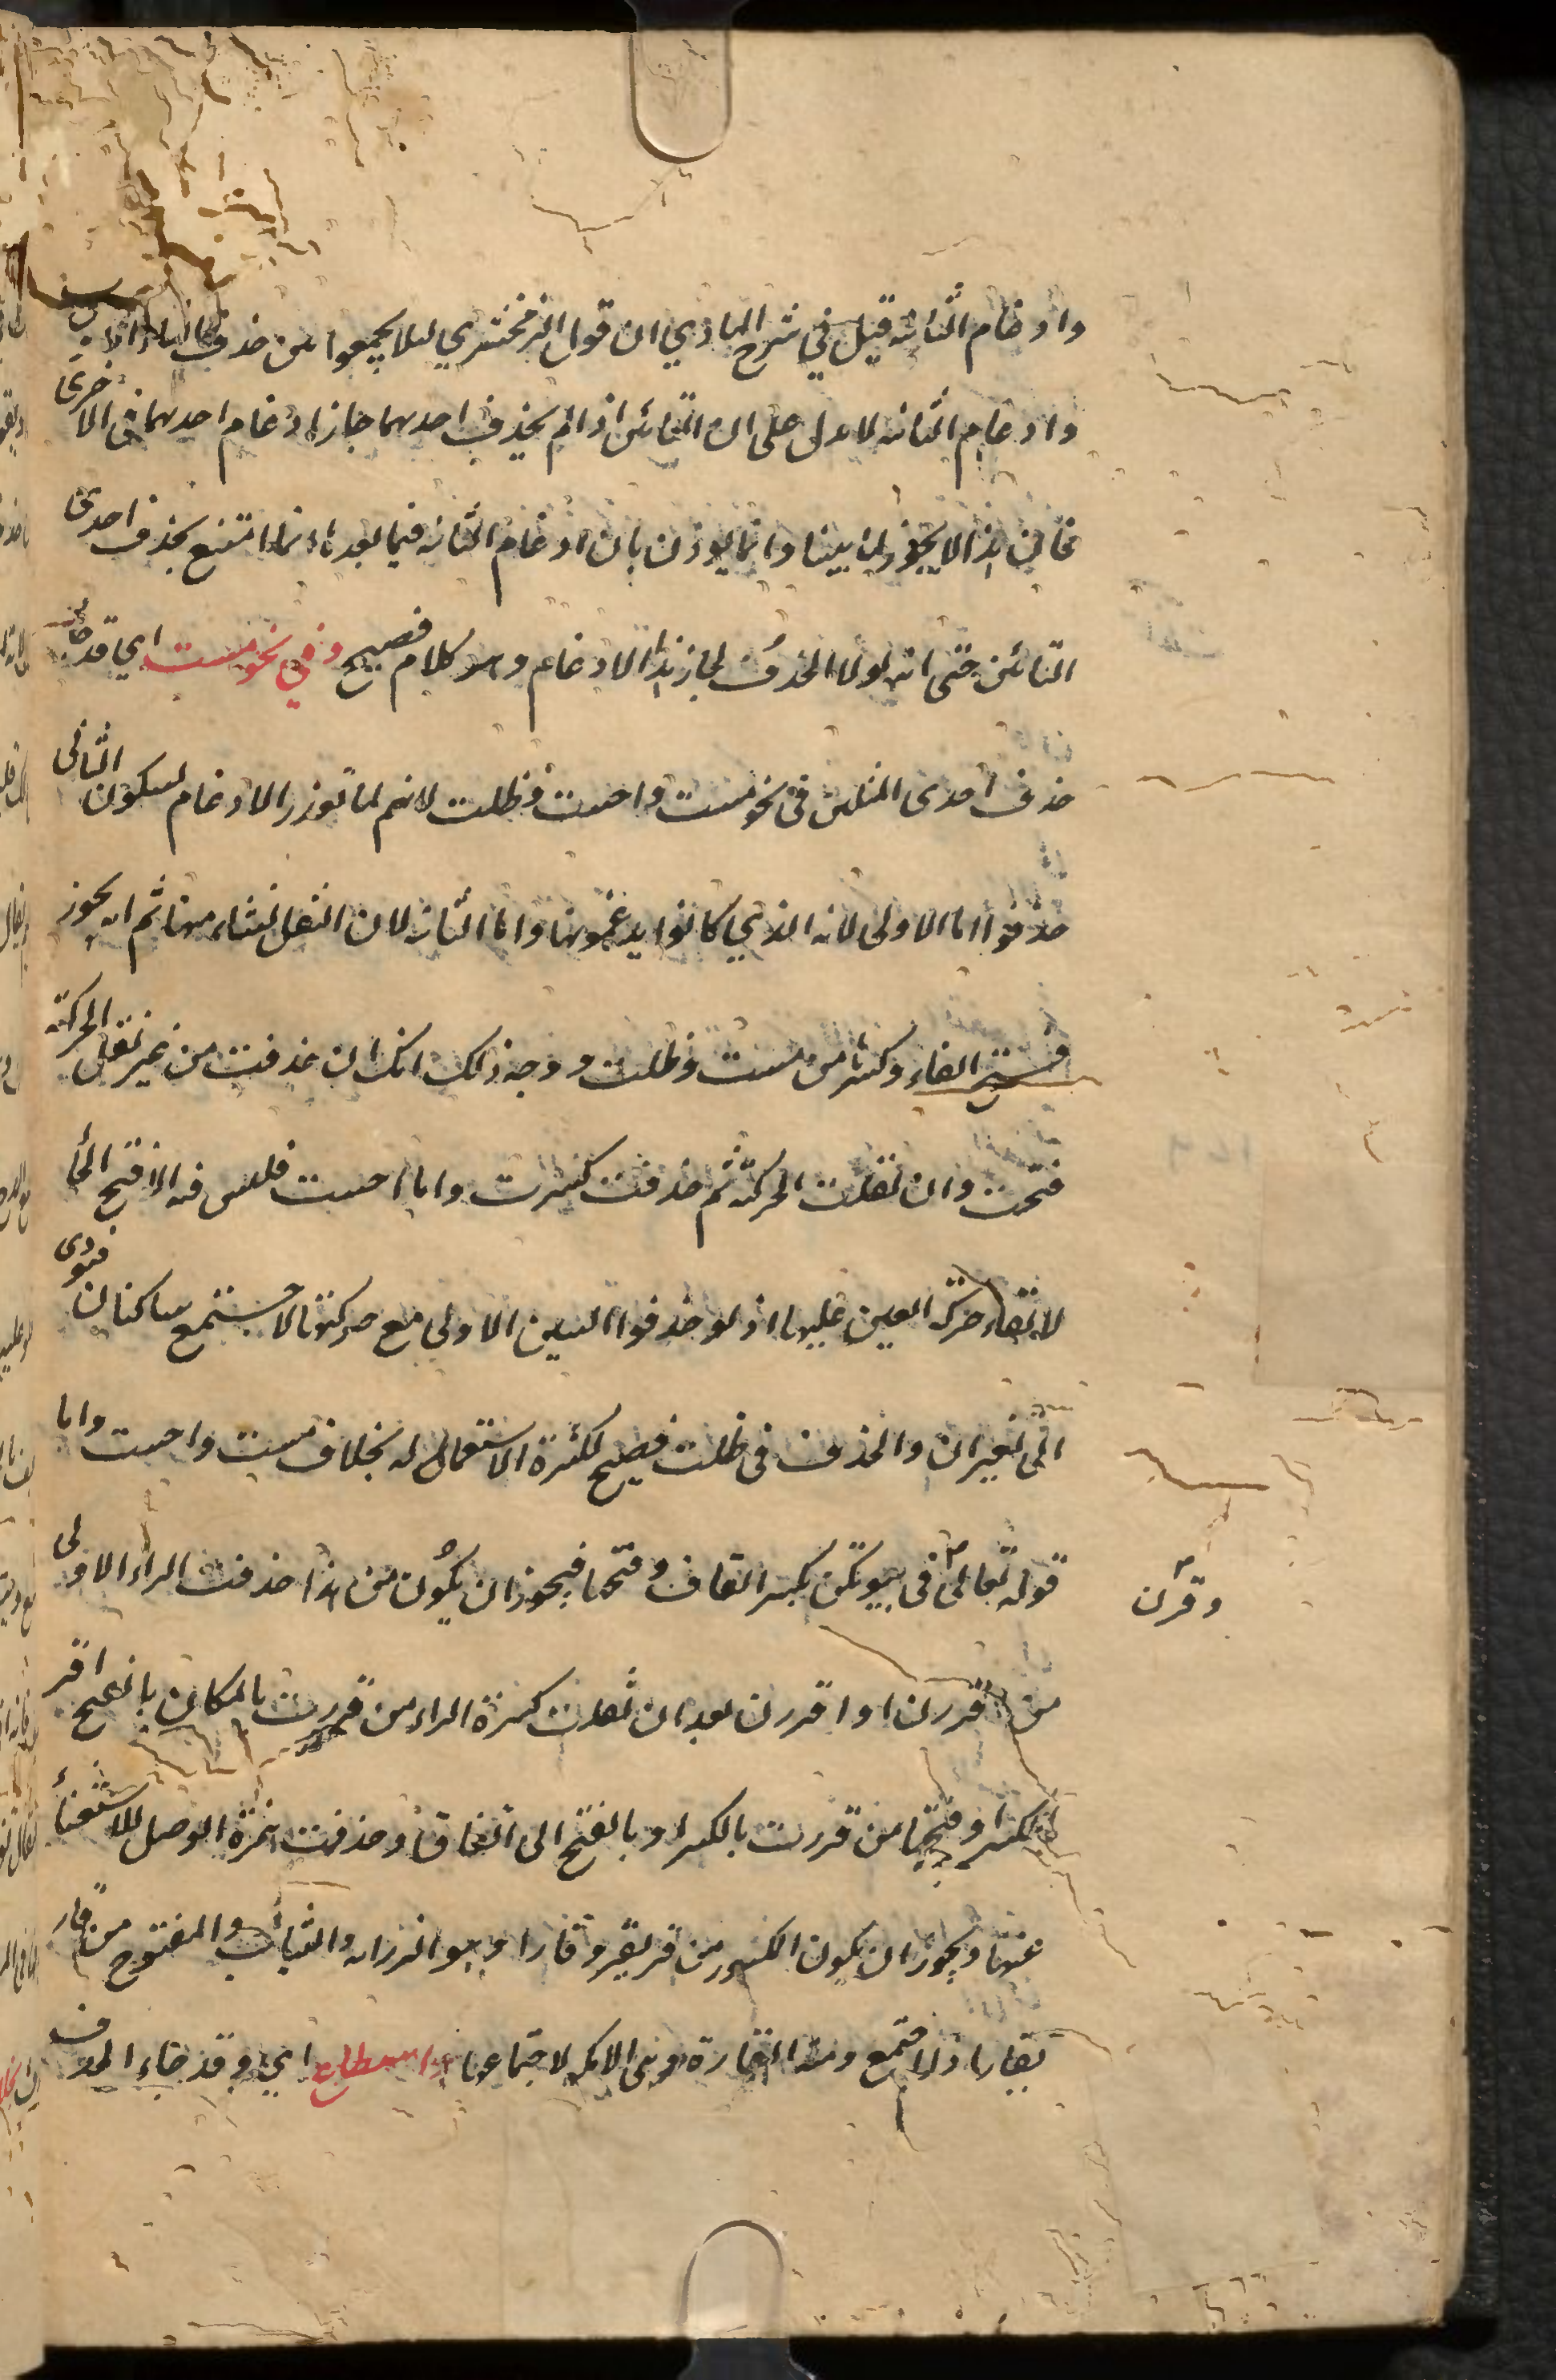 وادغام الثانية قيل في شرح الهادي ان قول الزمخشري لئلا يجمعوا بين حذف التاء الاولى
وادغام الثانية لا يدل على ان التائين اذا لم يحذف احديهما جاز ادغام احديهما في الاخرى
فان هذا لا يجوز لما بينا وانما يوذن بان ادغام الثانية فيما بعدها انما امتنع بحذف احدى
التائين حتى انه لولا الحذف لجاز هذا الادغام وهو كلام فصيح وفي نحو مست اي قد جاء
حذف احدى المثلين في نحو مست واحست وظلت لانهم لما تعذر الادغام لسكون الثاني
حذفوا اما الاولى لانه الذي كانوا يدغمونها واما الثانية لان الثقل نشاء منها ثم انه يجوز
فتح الفاء وكسرها من مست وظلت ووجه ذلك انك ان حذفت من غير نقل الحركة
فتحت وان نقلت الحركة ثم حذفت كسرت واما احست فليس فيه الا فتح الحاء
لالقاء حركة العين عليها اذ لو حذفوا السين الاولى مع حركتها لاجتمع ساكنان فيودى
الى تغييران والحذف في ظلت فصيح لكثرة الاستعمال له بخلاف مست واحست واما
قوله تعالى في بيوتكن بكسر القاف وفتحها فيجوز ان يكون من هذا حذفت الراء الاولى
وقرن
من اقررن او اقررن بعد ان نقلت كسرة الراء من قررت بالمكان بالفتح اقر
بكسر او فتحها من قررت بالكسر او بالفتح الى القاف وحذفت همزة الوصل للاستغناء
عنها ويجوز ان يكون الكسور من قر يقر وقارا وهو الرزانة والثبات والمفتوح من قار
يقار اذا اجتمع ومنه القارة وهي الاكمة لاجتماعها واسطاع اي وقد جاء الحذف